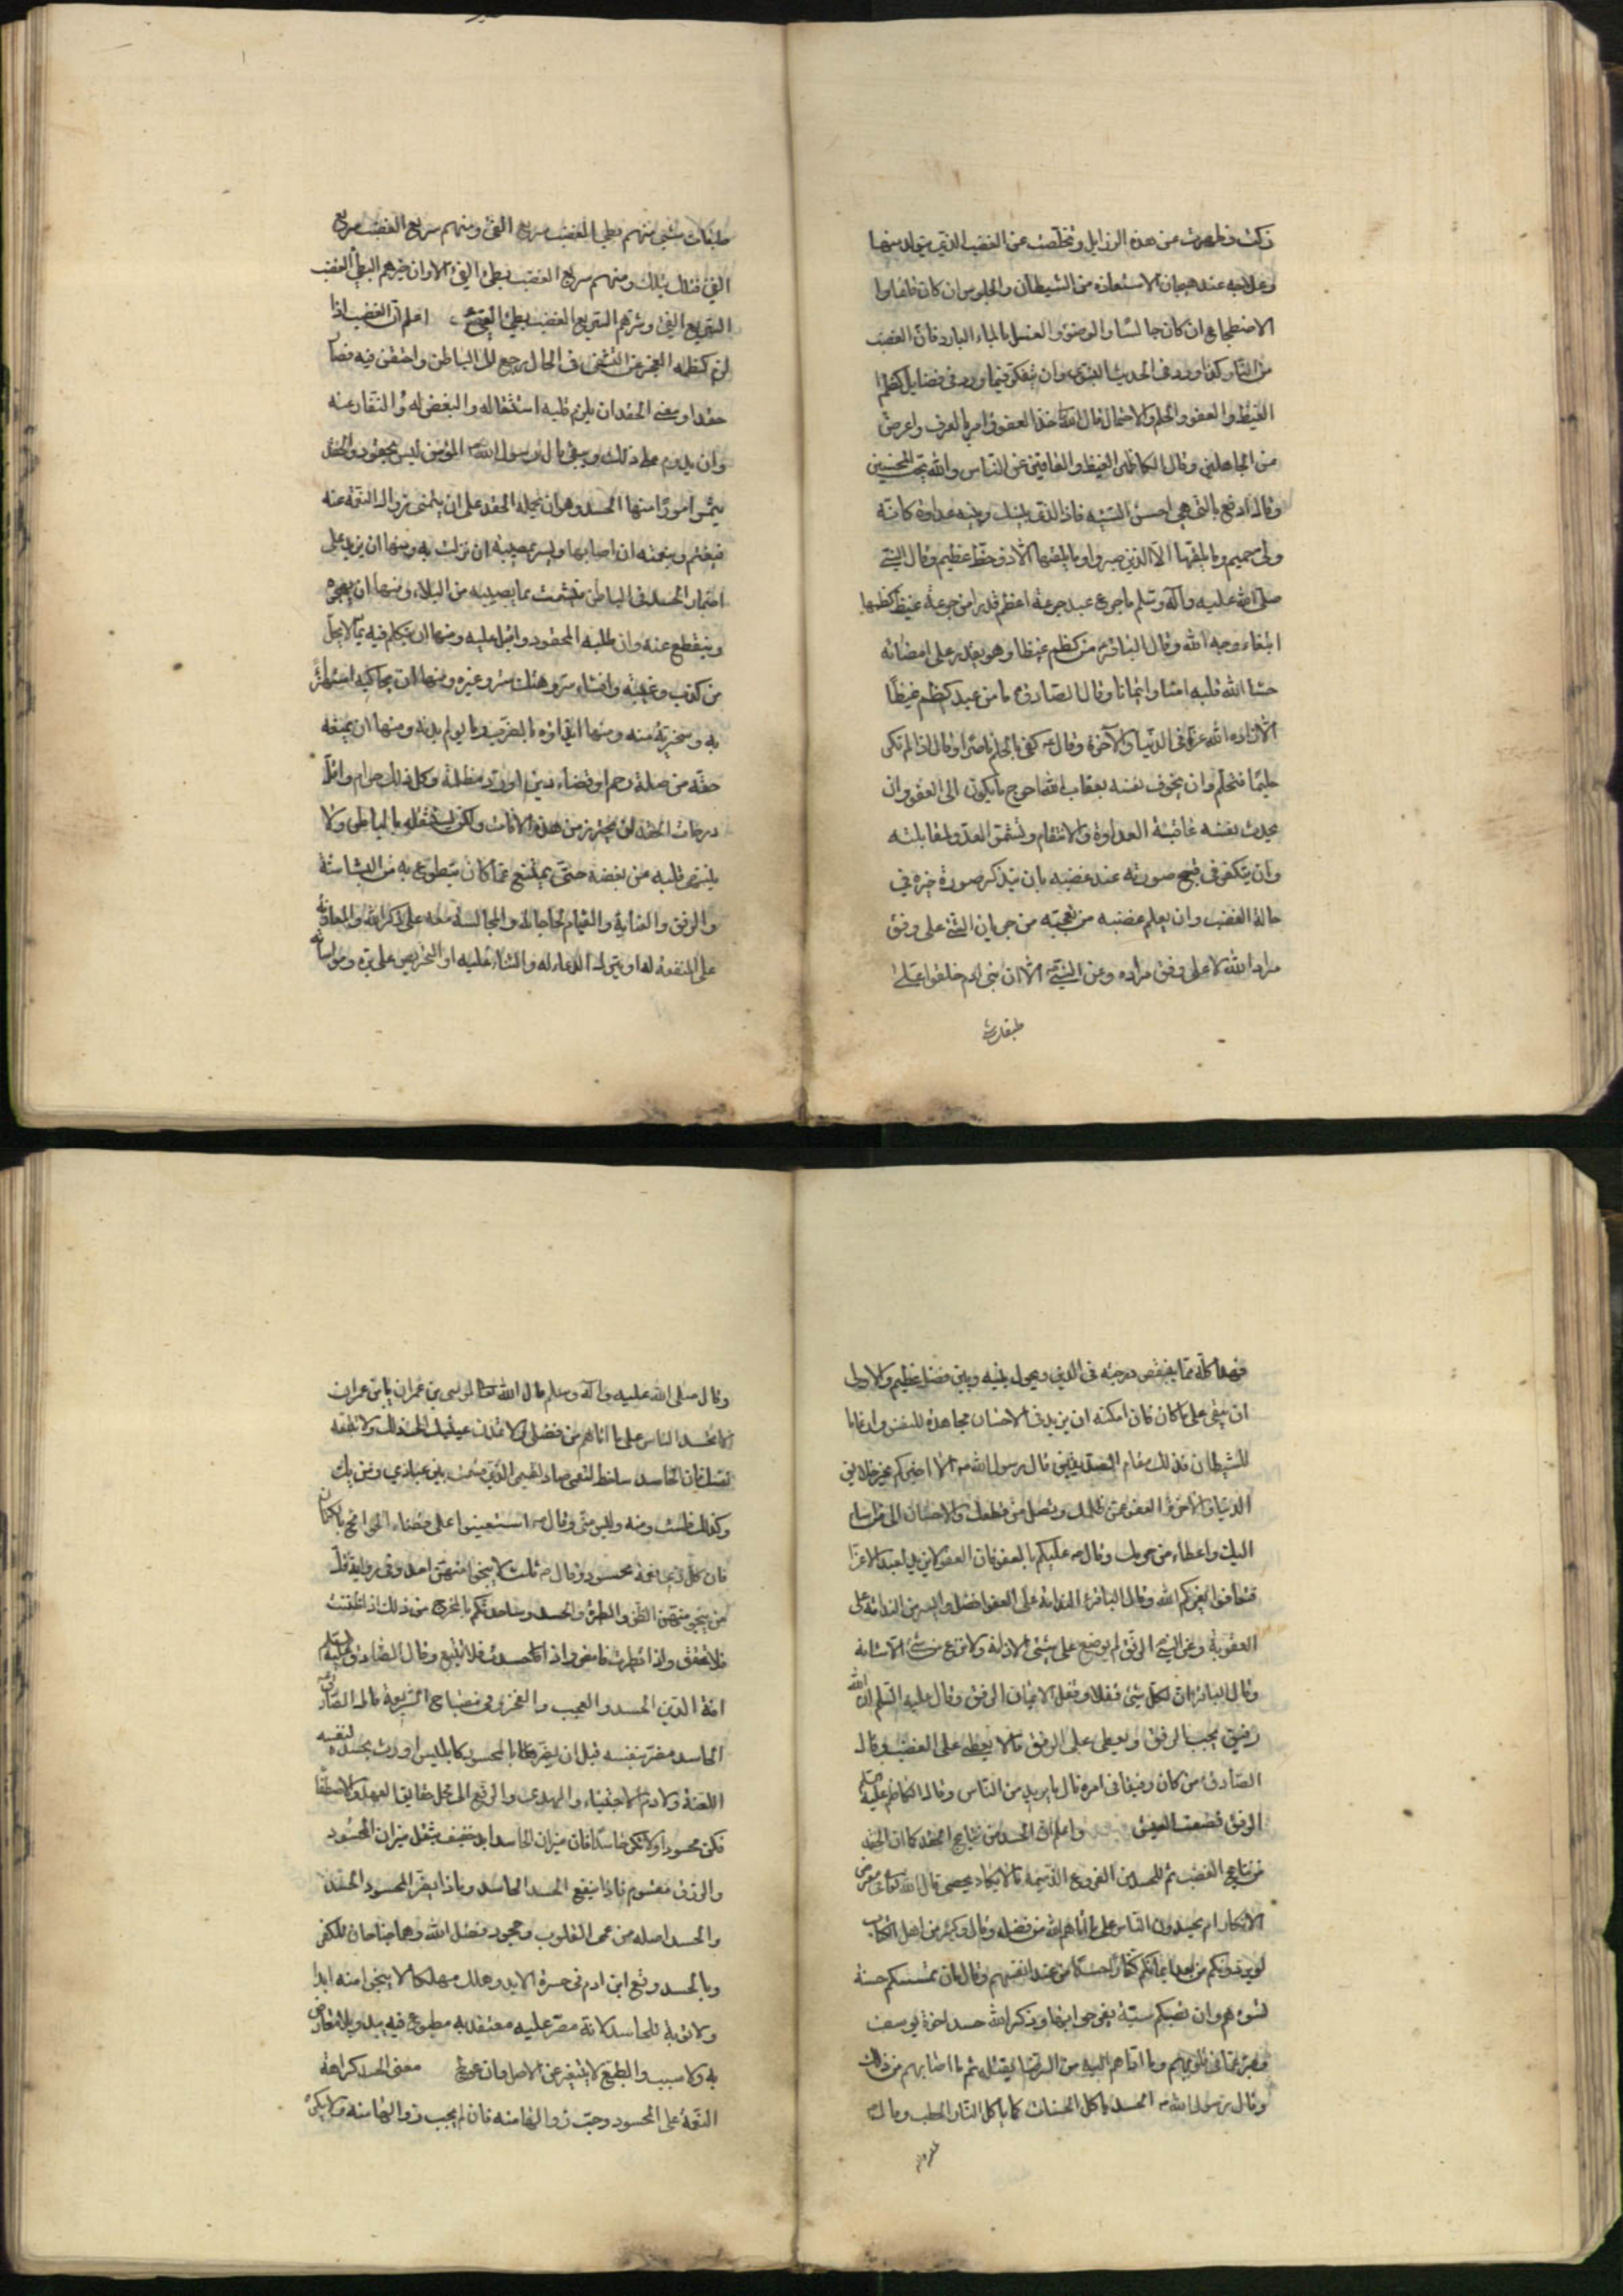 زكت وطهرت عن هذه الرذايل وتخلصت عن الغضب الذي يتولد منها
وعلاجه عند هيجانه الاستعاذة من الشيطان والجلوس ان كان قائما و
الاضطجاع ان كان جالسا والوضوء والغسل بالماء البارد فان الغضب
من النار كذا ورد في الحديث النبوي وان يتفكر فيما ورد في فضايل كظم
الغيظ والعفو والحلم والاحتمال قال الله تعالى خذ العفو وامر بالعرف واعرض
عن الجاهلين وقال الكاظمين الغيظ والعافين عن الناس والله يحب المحسنين
وقال ادفع بالتي هي احسن السيئة فاذا الذي بينك وبينه عداوة كانه
ولي حميم وما يلقيها الا الذين صبروا وما يلقيها الا ذو حظ عظيم وقال النبي
صلى الله عليه وآله وسلم ما جرع عبد جرعة اعظم قدرا من جرعة غيظ كظمها
ابتغاء وجه الله وقال الباقر من كظم غيظا وهو يقدر على امضائه
حشا الله قلبه امنا وايمانا وقال الصادق ما من عبد كظم غيظا
الا زاده الله عزا في الدنيا والآخرة وقال كفى بالحلم ناصرا وقال اذا لم تكن
حليما فتحلم وان يخوف نفسه بعقاب الله احوج ما يكون الى العفو وان
يحدث نفسه عاقبة العداوة والانتقام وتشمر العدو لمقابلته
وان يتفكر في قبح صورته عند غضبه بان يتذكر صورة غيره في
حالة الغضب وان يعلم غضبه من تعجبه من جريان الشئ على وفق
مراد الله لا على وفق مراده وعن النبي الا ان بني ادم خلقوا على
طبقات
طبقات شتى منهم بطئ الغضب سريع الفئ ومنهم سريع الغضب سريع
الفئ فتلك بتلك ومنهم سريع الغضب بطئ الفئ الا وان خيرهم البطئ الغضب
السريع الفئ وشرهم السريع الغضب بطئ الفئ اعلم ان الغضب اذا
لزم كظمه لعجز عن التشفي في الحال رجع الى الباطن واحتقن فيه فصار
حقدا ومعنى الحقد ان يلزم قلبه استثقاله والبغض له والنفار عنه
وان يدوم على ذلك ويبقى قال رسول الله المؤمن ليس بحقود والحقد
يثمر امورا منها الحسد وهو ان يحمله الحقد على ان يتمنى زوال النعمة عنه
فيغتم بنعمته ان اصابها ويسر بمصيبة ان نزلت به ومنها ان يزيد على
اضمار الحسد في الباطن فيشمت بما يصيبه من البلاء ومنها ان يهجره
وينقطع عنه وان طلبه المحقود واقبل عليه ومنها ان يتكلم فيه بما لا يحل
من كذب وغيبة وافشاء سر وهتك ستر وغيره ومنها ان يحاكيه استهزاء
به وسخرية منه ومنها ايذاؤه بالضرب وما يولم بدنه ومنها ان يمنعه
حقه من صلة رحم او قضاء دين او رد مظلمة وكل ذلك حرام واقل
درجات الحقد ان يحترز من هذه الآفات ولكن يستثقله بالباطن ولا
ينتهي قلبه عن بغضه حتى يمتنع عما كان يتطوع به من البشاشة
والرفق والعناية والقيام لحاجاته والمجالسة معه على ذكر الله والمعاونة
على المنفعة له او بترك الدعاء له والثناء عليه او التحريص على بره ومواساته
فهذا كله مما ينقص درجته في الدين ويحول بينه وبين فضل عظيم والاولى
ان يبقى على ما كان فان امكنه ان يزيد في الاحسان مجاهدة للنفس وارغاما
للشيطان فذلك مقام الصديقين قال رسول الله الا اخبركم بخير خلايق
الدنيا والآخرة العفو عمن ظلمك وتصل من قطعك والاحسان الى من اساء
اليك واعطاء من حرمك وقال عليكم بالعفو فان العفو لا يزيد العبد الا عزا
فتعافوا يعزكم الله وقال الباقر الندامة على العفو افضل وايسر من الندامة على
العقوبة وعن النبي الرفق لم يوضع على شئ الا زانه ولا نزع من شئ الا شانه
وقال الباقر ان لكل شئ قفلا وقفل الايمان الرفق وقال عليه السلم ان الله
رفيق يحب الرفق ويعطي على الرفق ما لا يعطي على العنف وقال
الصادق من كان رفيقا في امره نال ما يريد من الناس وقال الكاظم عليه السلم
الرفق نصف العيش واعلم ان الحسد من نتايج الحقد كما ان الحقد
من نتايج الغضب ثم للحسد من الفروع الذميمة ما لا يكاد يحصى قال الله تعالى في معرض
الانكار ام يحسدون الناس على ما اتاهم الله من فضله وقال ود كثير من اهل الكتاب
لو يردونكم من بعد ايمانكم كفارا حسدا من عند انفسهم وقال ان تمسسكم حسنة
تسؤهم وان تصبكم سيئة يفرحوا بها وذكر الله حسد اخوة يوسف
وعبر عما في قلوبهم وما
وقال رسول الله الحسد ياكل الحسنات كما ياكل النار الحطب وقال
وقال صلى الله عليه وآله وسلم قال الله تعالى لموسى بن عمران يا بن عمران
لا تحسد الناس على ما اتاهم من فضلي ولا تمدن عينيك الى ذلك ولا تتبعه
نفسك فان الحاسد ساخط لنعمي صاد لقسمي الذي قسمت بين عبادي ومن يك
كذلك فلست منه وليس مني وقال استعينوا على قضاء الحوائج بالكتمان
فان كل ذي نعمة محسود وقال ثلث لا ينجو منهن احد وفي رواية قل
من ينجو منهن الظن والطيرة والحسد وساحدثكم بالمخرج من ذلك اذا ظننت
فلا تحقق واذا تطيرت فامض واذا حسدت فلا تبغ وقال الصادق عليه السلم
افة الدين الحسد والعجب والفخر وفي مصباح الشريعة قال الصادق
الحاسد مضر بنفسه قبل ان يضر بالمحسود كابليس اورث بحسده لنفسه
اللعنة ولادم الاجتباء والهدى والرفع الى محل حقايق العهد والاصطفا
فكن محسودا ولا تكن حاسدا فان ميزان الحاسد ابدا خفيف بثقل ميزان المحسود
والرزق مقسوم فماذا ينفع الحسد الحاسد وماذا يضر المحسود الحسد
والحسد اصله من عمى القلوب وجحود فضل الله وهما جناحان للكفر
وبالحسد وقع ابن ادم في حسرة الابد وهلك مهلكا لا ينجو منه ابدا
ولا توبة للحاسد لانه مصر عليه معتقد به مطبوع فيه يبدو بلا معارض
به ولا سبب والطبع لا يتغير عن الاصل وان عولج معنى الحسد كراهة
النعمة على المحسود وحب زوالها منه فان لم يحب زوالها منه ولا يكره